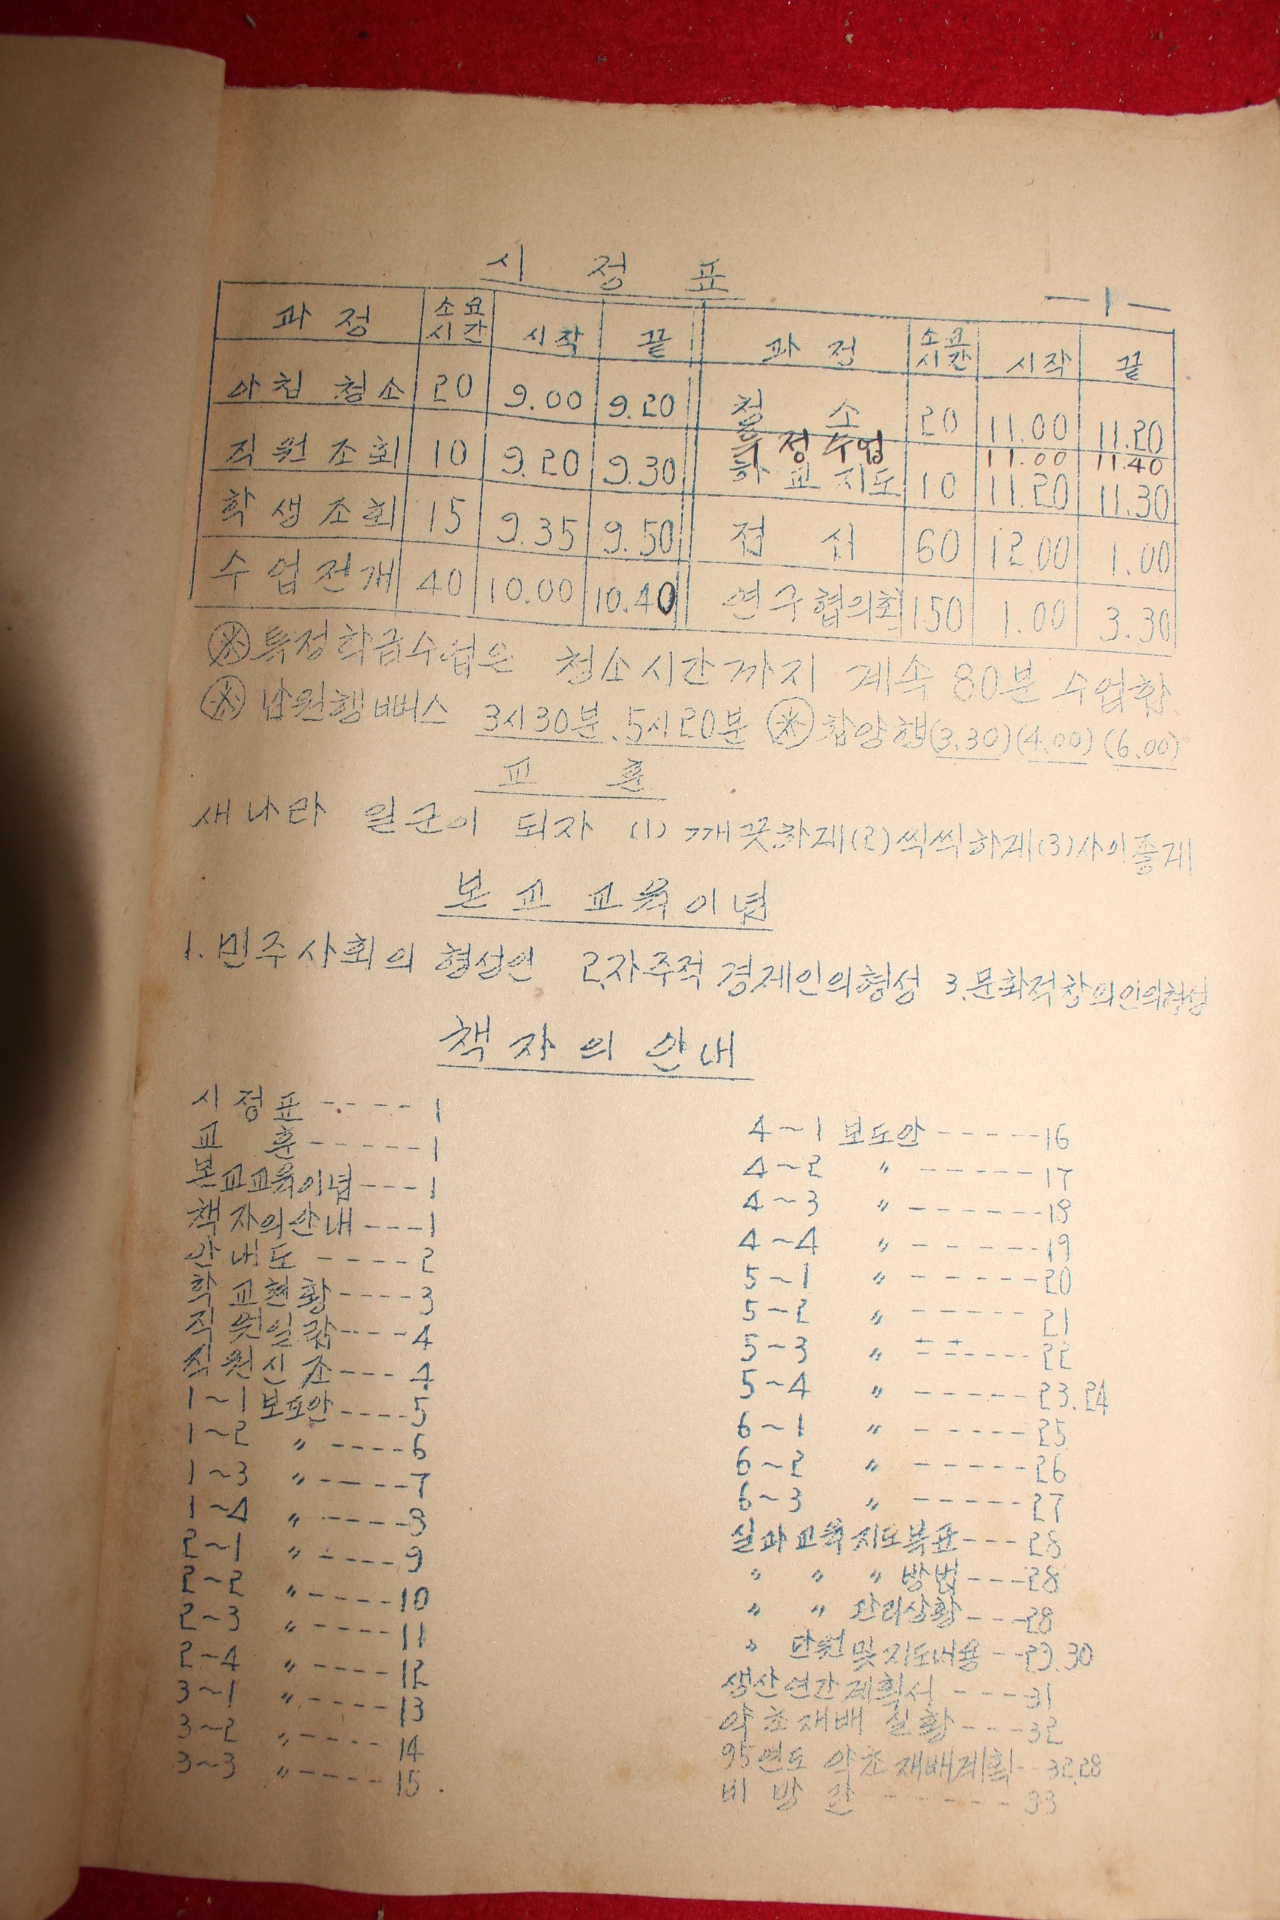 시 정 표
— 1 —
과 정 소요시간 시작 끝 과 정 소요시간 시작 끝
아침 청소 20 9.00 9.20 청 소 20 11.00 11.20
특정수업 11.00 11.40
직원조회 10 9.20 9.30 하교지도 10 11.20 11.30
학생조회 15 9.35 9.50 점 심 60 12.00 1.00
수업전개 40 10.00 10.40 연구협의회 150 1.00 3.30
※ 특정학급수업은 청소시간까지 계속 80분 수업함.
※ 남원행뻐스 3시30분. 5시20분 ※ 함양행(3.30)(4.00)(6.00)
교 훈
새나라 일군이 되자 (1) 깨끗하게(2)씩씩하게(3)사이좋게
본교 교육이념
1. 민주사회의 형성인 2.자주적 경제인의형성 3.문화적창의인의형성
책자의 안내
시정표 ---- 1
교 훈 ----- 1
본교교육이념 --- 1
책자의안내 --- 1
안내도 ---- 2
학교현황 ---- 3
직원일람 ---- 4
직원신조 --- 4
1~1 보도안 ---- 5
1~2 〃 ---- 6
1~3 〃 ---- 7
1~4 〃 ---- 8
2~1 〃 ---- 9
2~2 〃 ---- 10
2~3 〃 ---- 11
2~4 〃 ---- 12
3~1 〃 ---- 13
3~2 〃 ---- 14
3~3 〃 ---- 15
4~1 보도안 ----- 16
4~2 〃 ------ 17
4~3 〃 ------ 18
4~4 〃 ------ 19
5~1 〃 ------ 20
5~2 〃 ------ 21
5~3 〃 ------ 22
5~4 〃 ----- 23.24
6~1 〃 ----- 25
6~2 〃 ----- 26
6~3 〃 ----- 27
실과교육지도목표 --- 28
〃 〃 〃 방법 --- 28
〃 〃 관리상황 --- 28
〃 단원및지도내용 -- 29.30
생산연간계획서 --- 31
약초재배 실황 --- 32
95연도 약초재배계획 -- 32.28
비 망 란 ------ 33